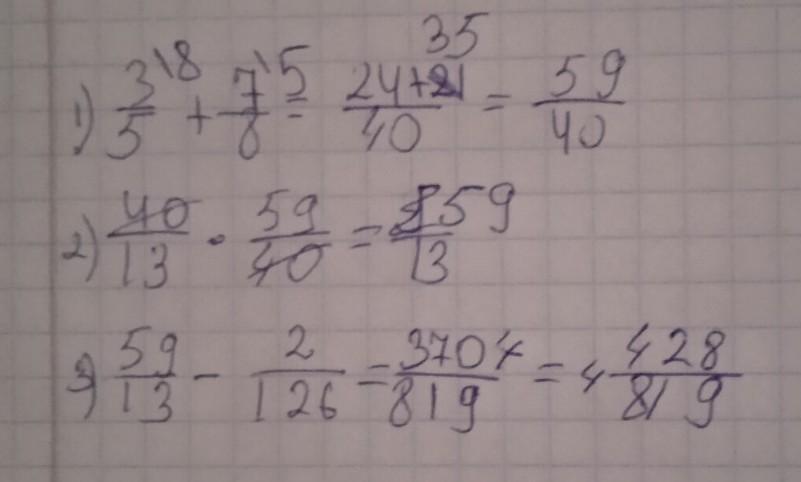 1) 3/5\8 + 7/8\5 = (24+35)/40 = 59/40
2) 40/13 · 59/40 = 59/13
3) 59/13 - 2/126 = 3704/819 = 4 428/819